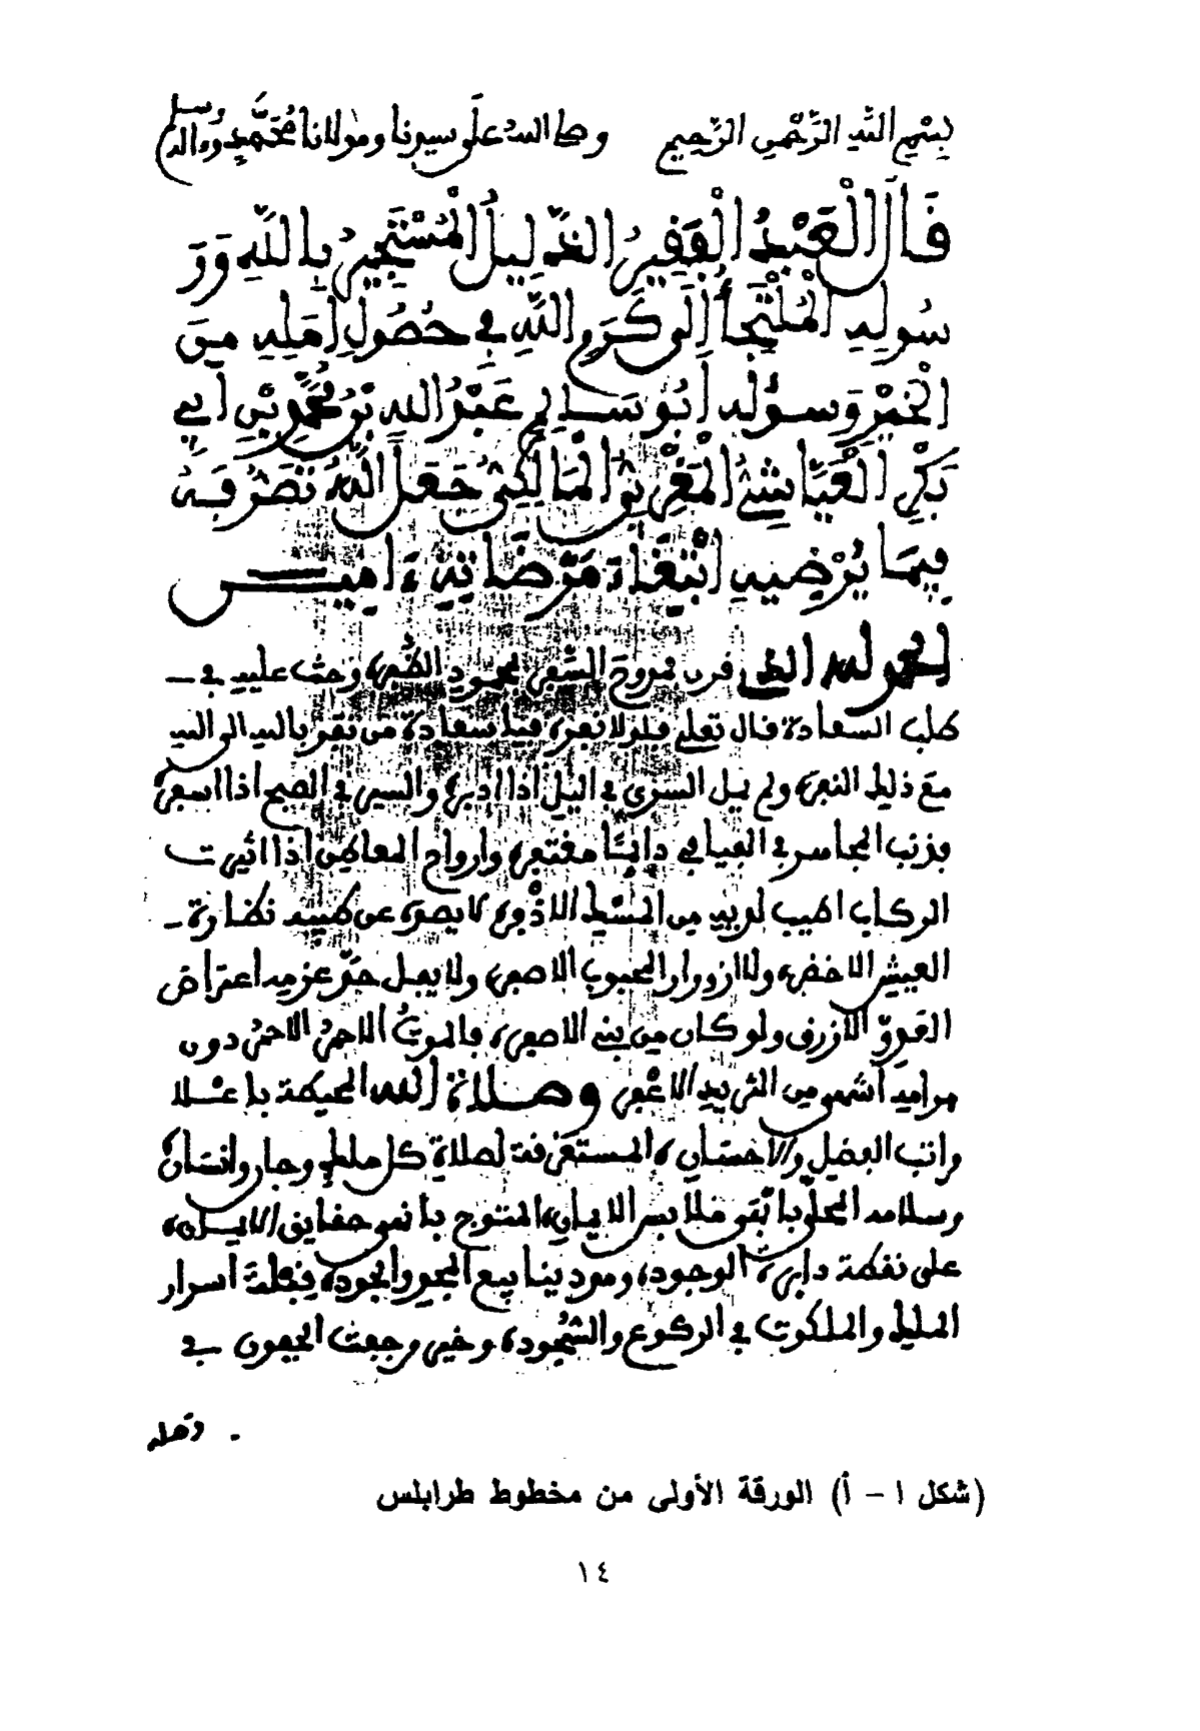 بسم الله الرحمن الرحيم وصلى الله على سيدنا ومولانا محمد وءاله وسلم
قَالَ الْعَبْدُ الْفَقِيرُ الذَّلِيلُ الْمُسْتَجِيرُ بِاللَّهِ وَرَ
سُولِهِ الْمُلْتَجَأُ إِلَى كَرَمِ اللَّهِ فِي حُصُولِ أَمَلِهِ مِنَ
الْخَيْرِ وَسُؤْلِهِ أَبُو سَالِمٍ عَبْدُ اللهِ بْنُ مُحَمَّدِ بْنِ أَبِي
بَكْرٍ الْعَيَّاشِيُّ الْمَغْرِبِيُّ الْمَالِكِيُّ جَعَلَ اللَّهُ تَصَرُّفَهُ
فِيمَا يُرْضِيهِ ابْتِغَاءَ مَرْضَاتِهِ ءَامِيـــن
الحمد لله الذي قرن السفر وحث عليه في
طلب السعادة فقال تعلى فلولا نفر فيا سعادة من نفر بالله الى الله
مع ذلك النفر ولم يمل السرى في اليل اذا ادبر والسير في الصبح اذا اسفر
في الفيافي دايما وارواح اذا اثيرت
الركاب اطيب لديه من المسك الاذفر لا يصده عن طيبه نضارة
العيش الاخضر ولا ازورار المحبوب الاصفر ولا يفل حد عزمه اعتراض
العدو الازرق ولو كان من بني الاصفر فالموت الاحمر دون
مرامه أشهى من الثريد الاعفر وصلاة الله المحيطة باعلا
مراتب الفضل والاحسان المستغرفة لصلاة كل ملك وجان وانسان
وسلامه المحلى ملابس الايمان المتوج حقايق
على نقطة دايرة الوجود ينابيع المجد والجود قبلة أسرار
الملك والملكوت في الركوع والسجود وخير في
(شكل ١ - أ) الورقة الأولى من مخطوط طرابلس
١٤